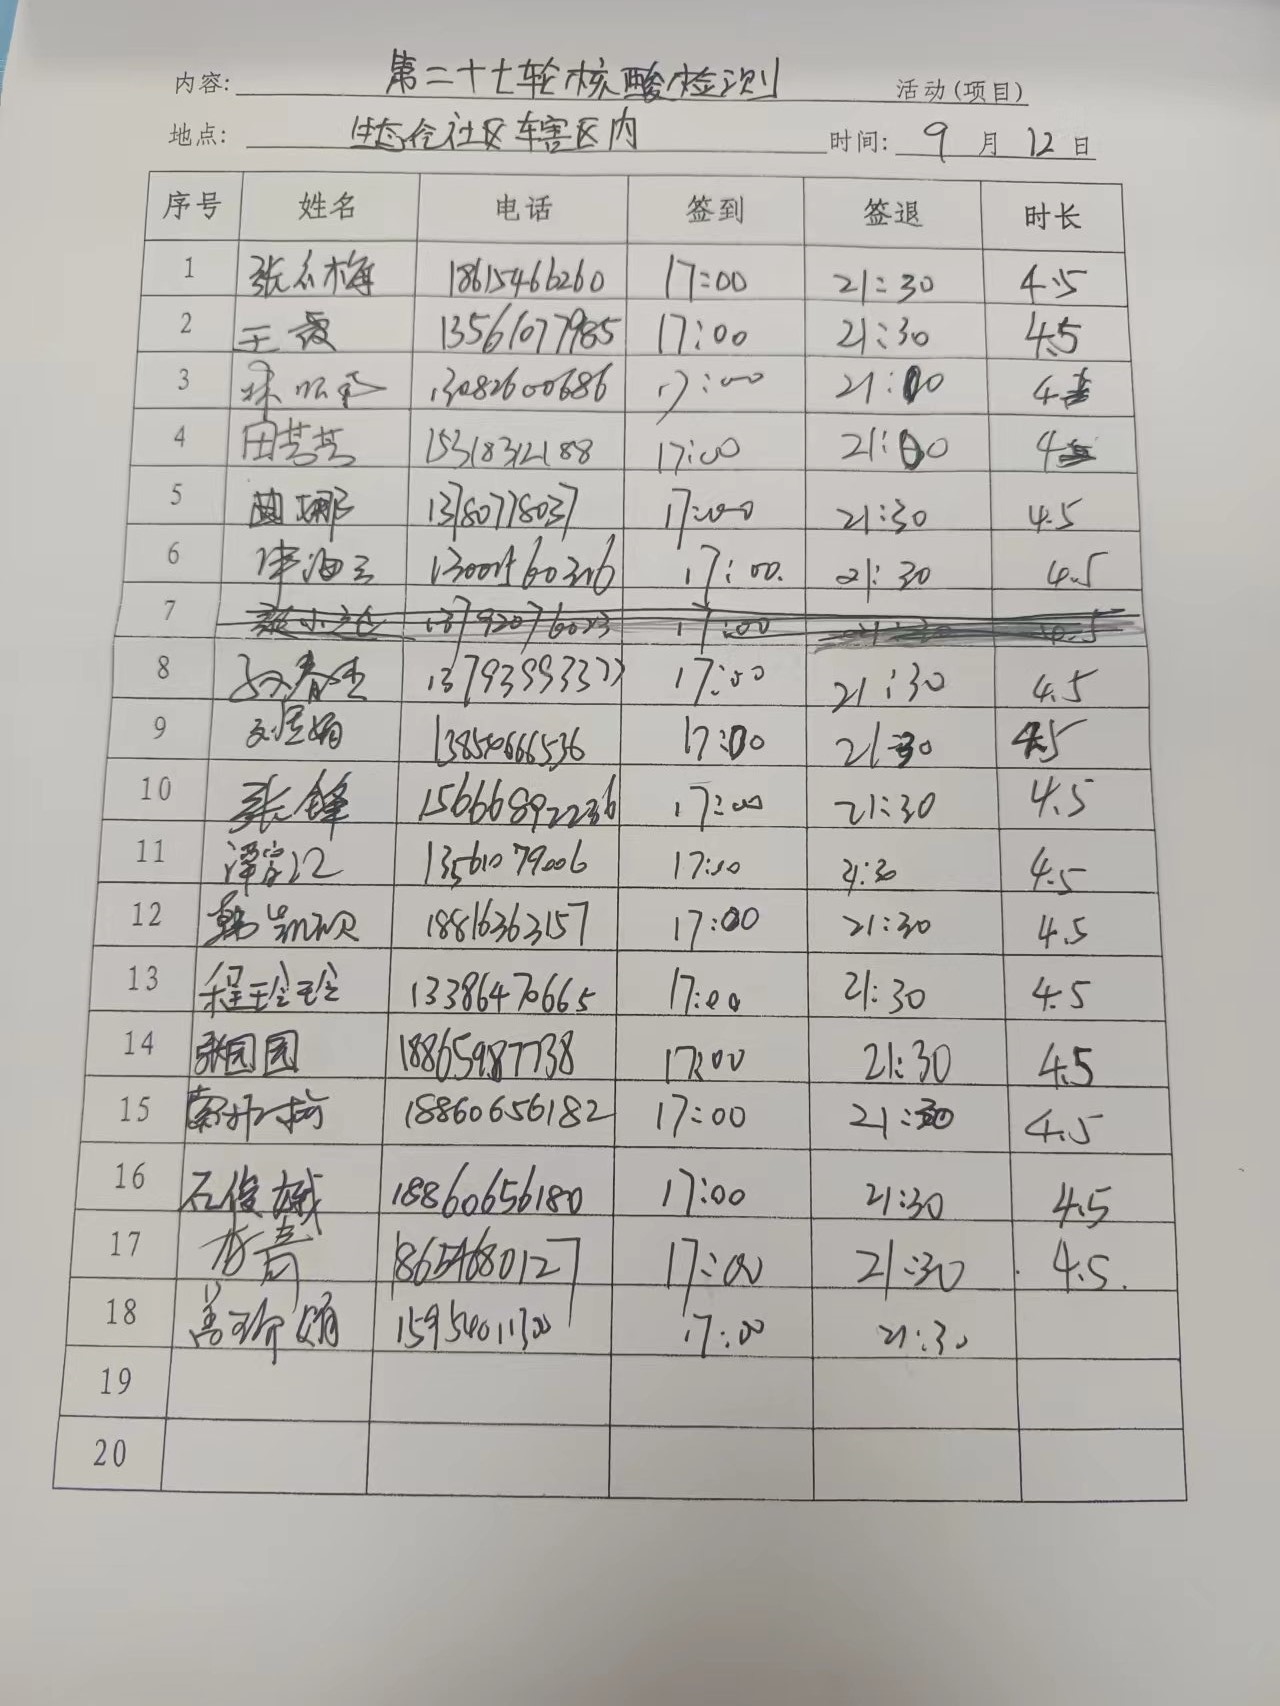 内容: 第二十七轮核酸检测 活动(项目)
地点: 生态谷社区辖区内 时间: 9月12日
序号 姓名 电话 签到 签退 时长
1 张梅 18615466260 17:00 21:30 4.5
2 王霞 13561077985 17:00 21:30 4.5
3 13082600686 17:00 21:00 4
4 田芸芸 15318312188 17:00 21:00 4
5 娜 13780778037 17:00 21:30 4.5
6 17:00. 21:30 4.5
7 17:00 4.5
8 孙春生 17:00 21:30 4.5
9 娟 13854666536 17:00 21:30 4.5
10 张锋 15666892236 17:00 21:30 4.5
11 13561079006 17:00 21:30 4.5
12 韩凯硕 18816363157 17:00 21:30 4.5
13 程玲玲 13386470665 17:00 21:30 4.5
14 张园园 18865987738 17:00 21:30 4.5
15 18860656182 17:00 21:30 4.5
16 石俊斌 18860656180 17:00 21:30 4.5
17 18654680127 17:00 21:30 4.5.
18 娟 15954011300 17:00 21:30
19
20